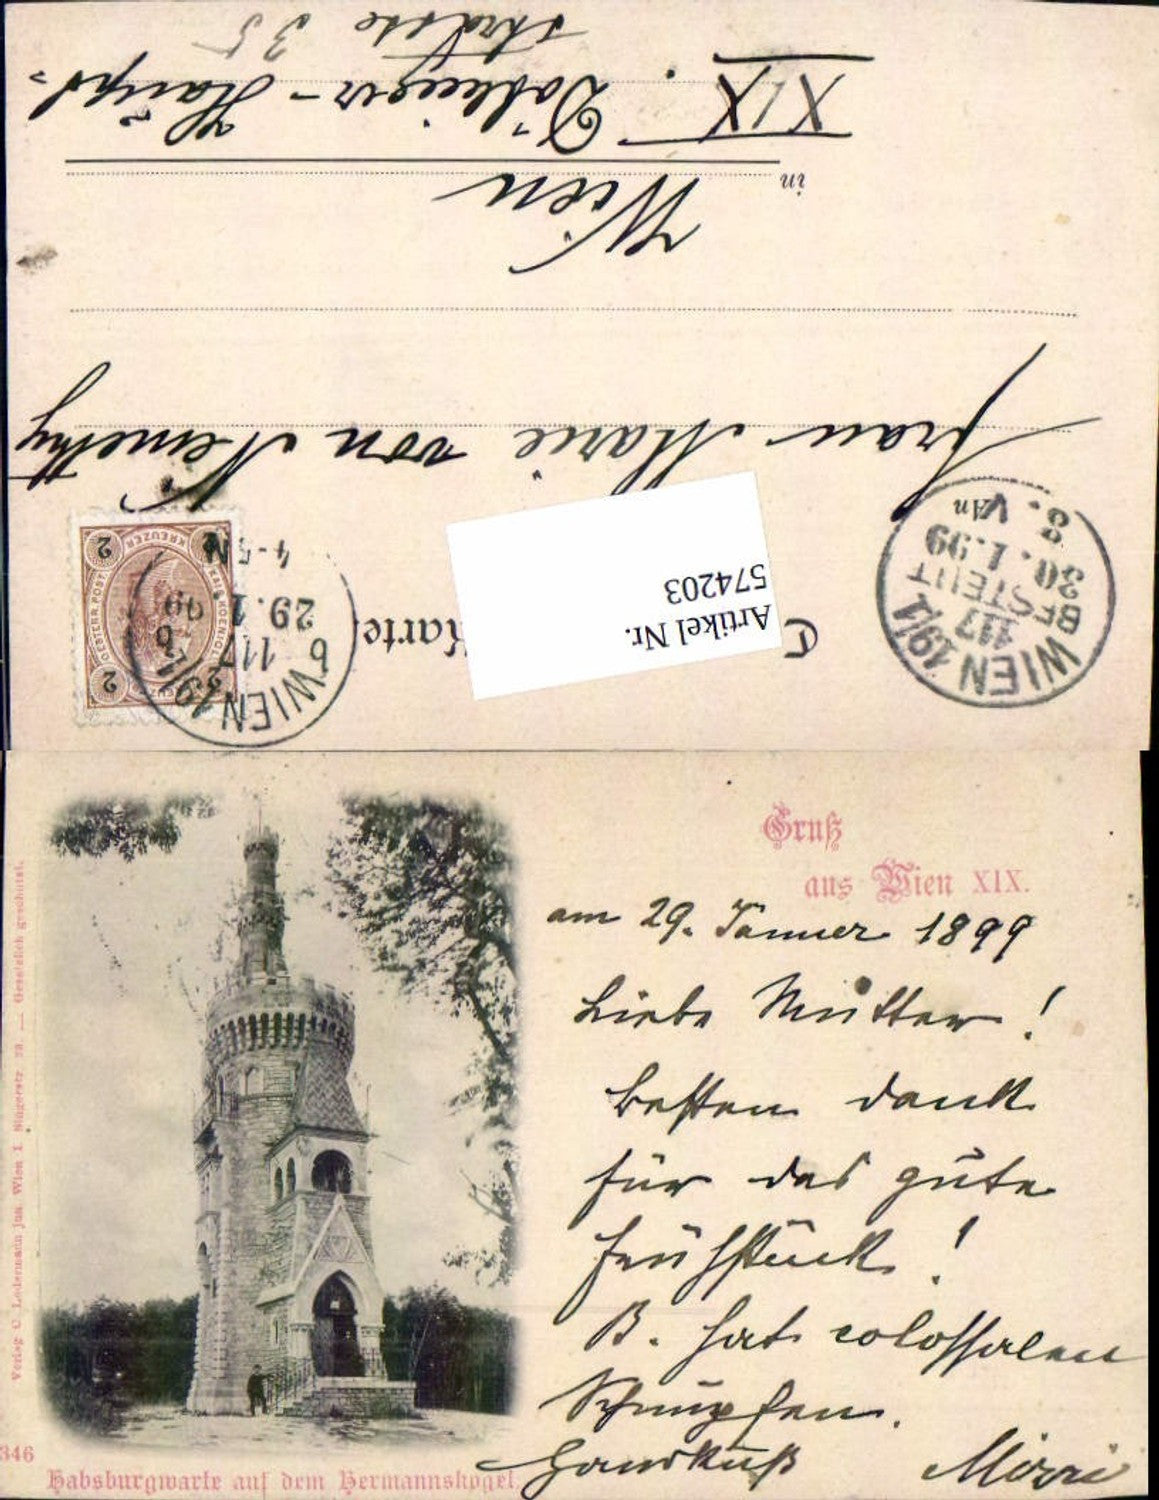 Artikel Nr.
574203
WIEN 19/1
117
BESTELLT
30.1.99
8. V
An
WIEN 19/1
117
29.1.99
4-5 N
6 6
2 KREUZER 2
OESTERR. POST
2 2
Karte.
Frau Marie von Nemethy
in Wien
XIX. Döblinger-Haupt-
strasse 35
Gruß
aus Wien XIX.
am 29. Jänner 1899
Liebe Mutter!
Besten Dank
für das gute
Frühstück!
B. hat colossalen
Schnupfen.
Handkuß Mizzi
Habsburgwarte auf dem Hermannskogel.
346
Verlag C. Ledermann jun. Wien I Singerstr. — Gesetzlich geschützt.